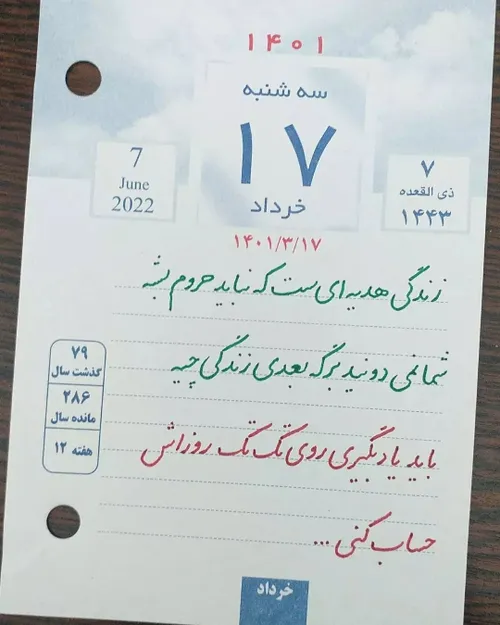 ۱۴۰۱
سه شنبه
۱۷
خرداد
7
June
2022
۷
ذی القعده
۱۴۴۳
۱۴۰۱/۳/۱۷
زندگی هدیه ای ست که نباید حروم بشه
شما نمی دونید برگه بعدی زندگی چیه
باید یاد بگیری روی تک تک روزاش
حساب کنی ...
۷۹
گذشت سال
۲۸۶
مانده سال
هفته ۱۲
خرداد